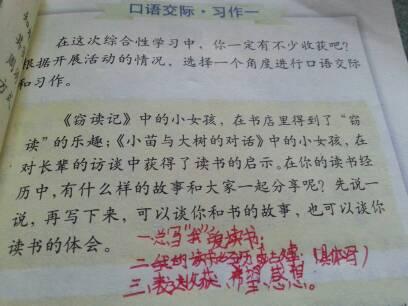 口语交际·习作一
在这次综合性学习中，你一定有不少收获吧？
根据开展活动的情况，选择一个角度进行口语交际
和习作。
《窃读记》中的小女孩，在书店里得到了“窃
读”的乐趣；《小苗与大树的对话》中的小女孩，在
对长辈的访谈中获得了读书的启示。在你的读书经
历中，有什么样的故事和大家一起分享呢？先说一
说，再写下来，可以谈你和书的故事，也可以谈你
读书的体会。
一总写“我”爱读书；
二、我的读书 (具体写)
三、表达收获、希望、感想。